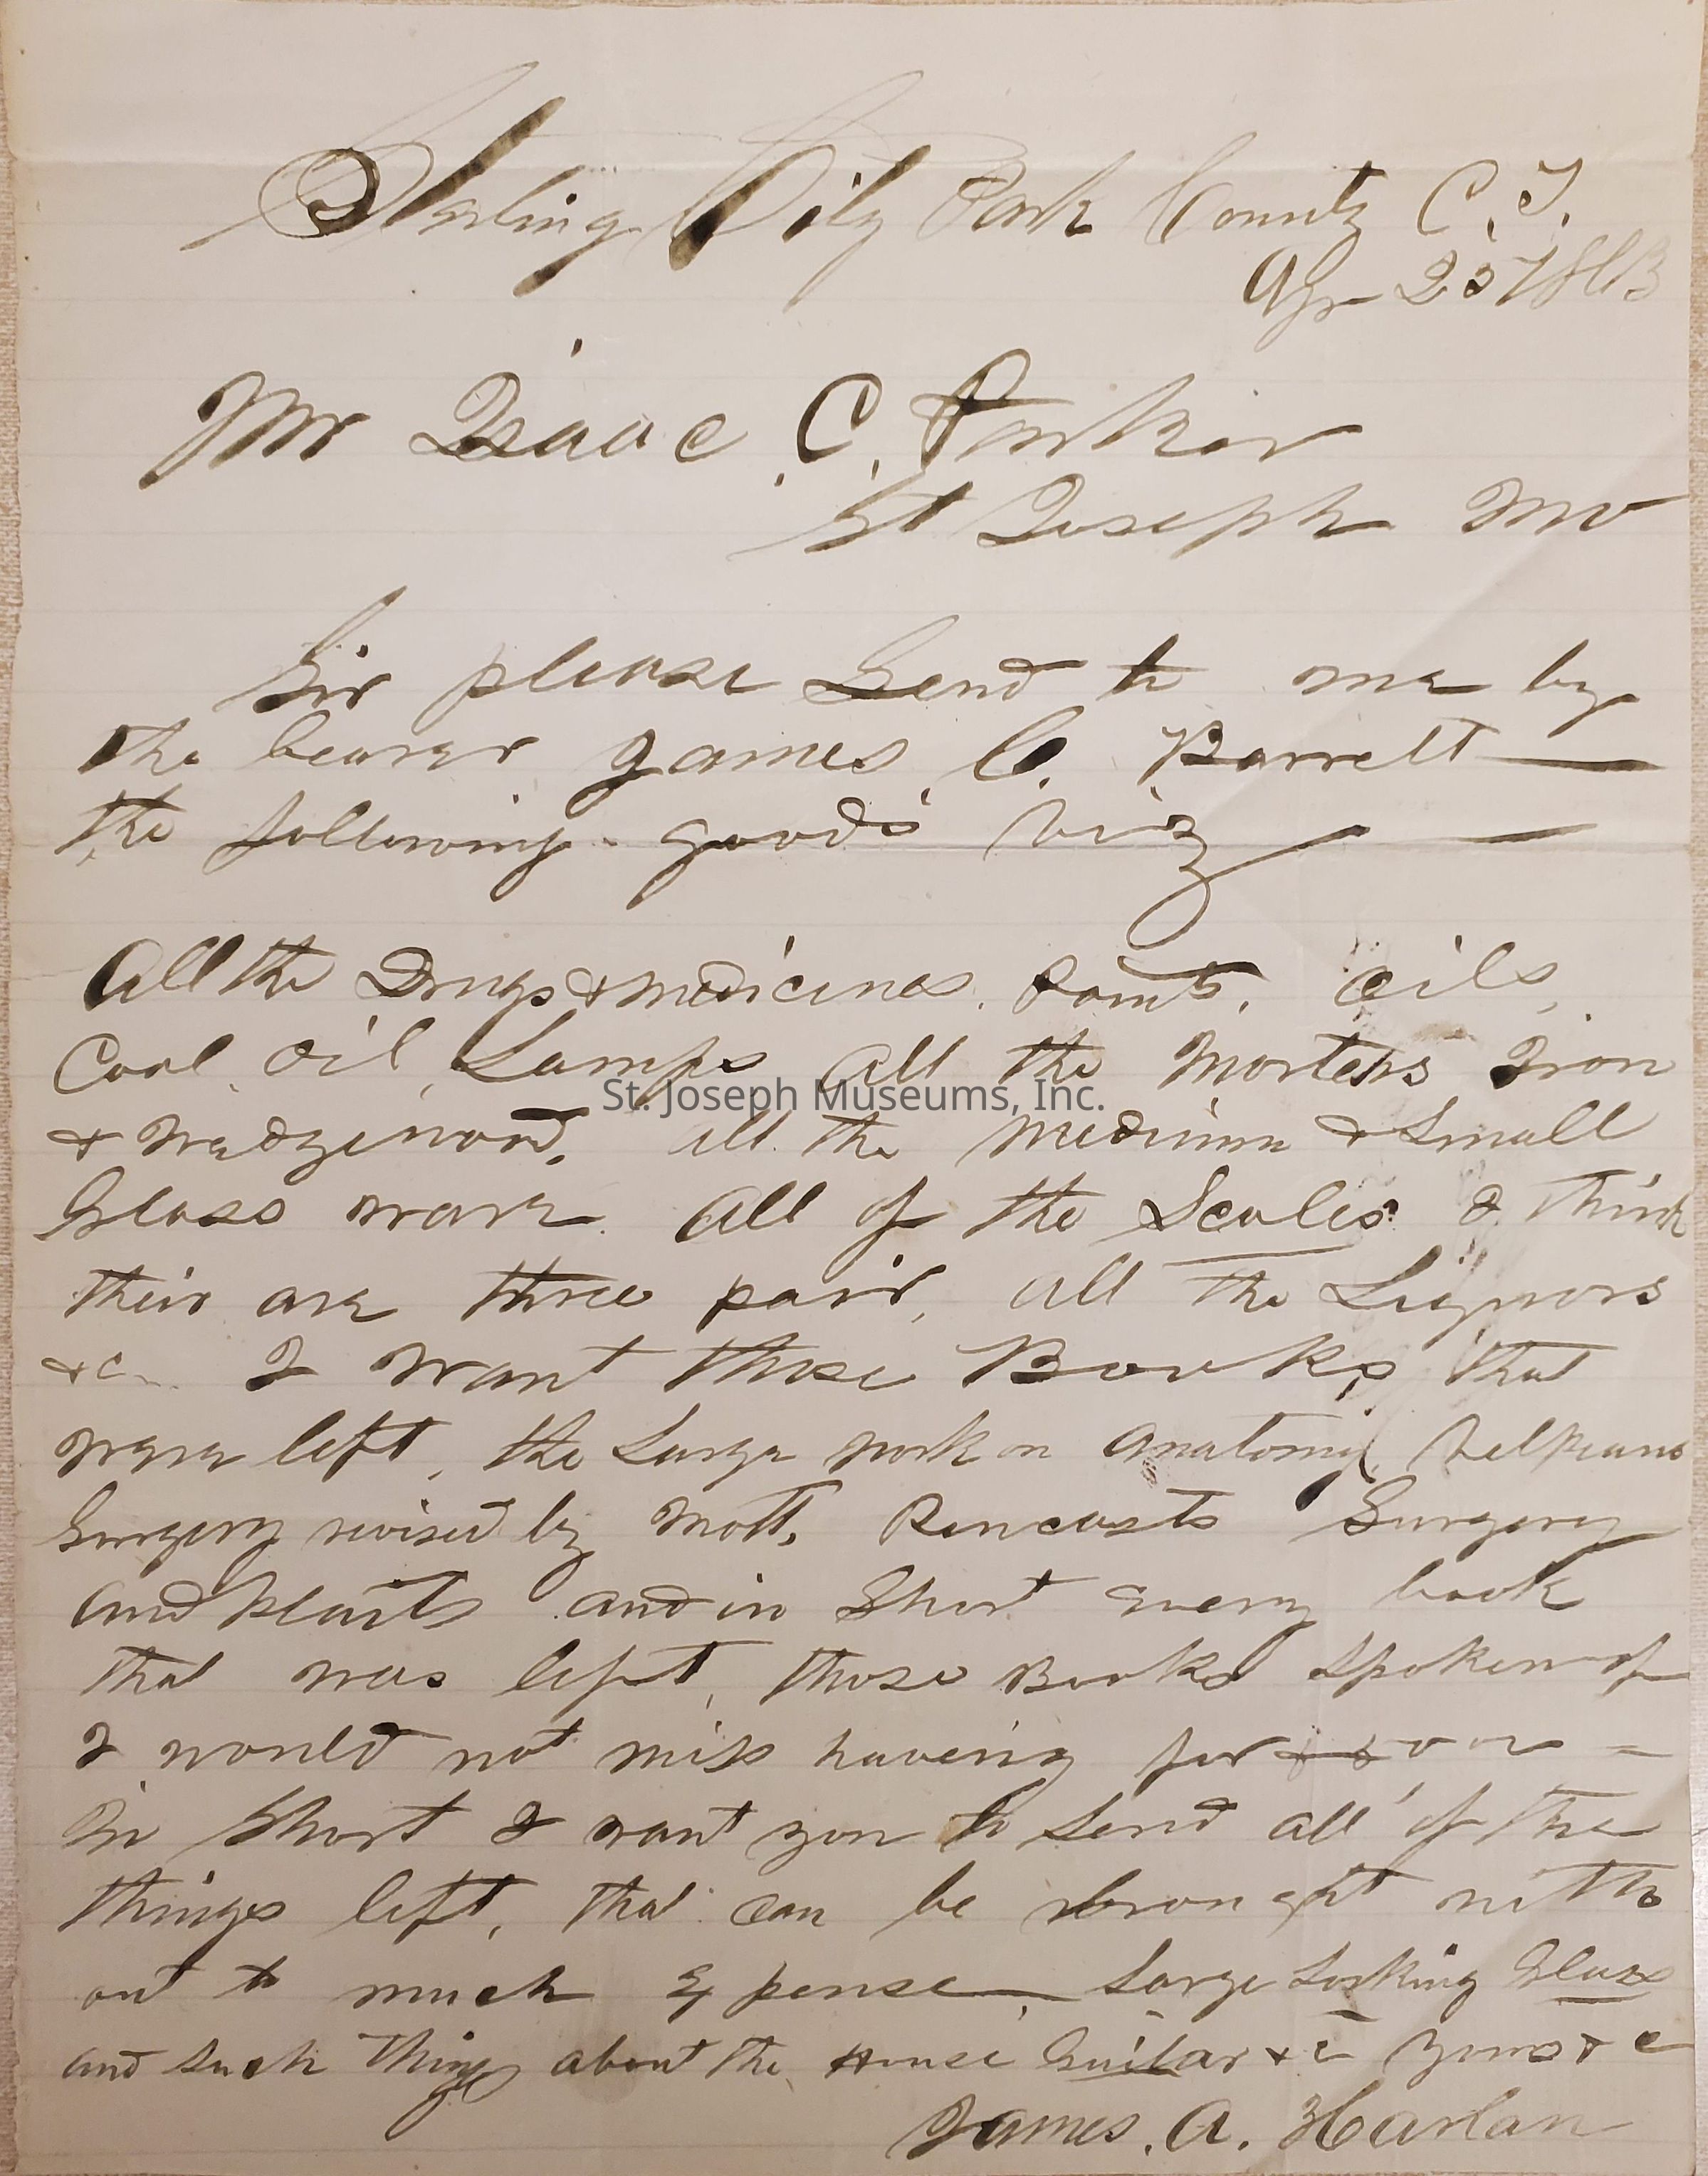 Starling City Park County C.T.
Apr 25 1863
Mr Isaac. C. Parker
St Joseph Mo
Sir please Send to me by
the bearer James C. Barrett
the following goods viz
All the Drugs & medicines. Paints, Oils,
Coal Oil, Lamps All the Morters Iron
St. Joseph Museums, Inc.
& Wedgewood, all the Medium & Small
Glass ware. All of the Scales I think
their are three pair, all the Liquors
&c I want those Books that
were left, the Large work on Anatomy, Velpeaus
Surgery revised by Mott, Pancoasts Surgery
and Plaits and in Short every book
that was left, those Books Spoken of
I would not miss having for
In Short I want you to Send all of the
things left, that can be brought with
out to much Expense Large Looking Glass
and Such Things about the House Guitar &c Yours &c
James. A. Harlan